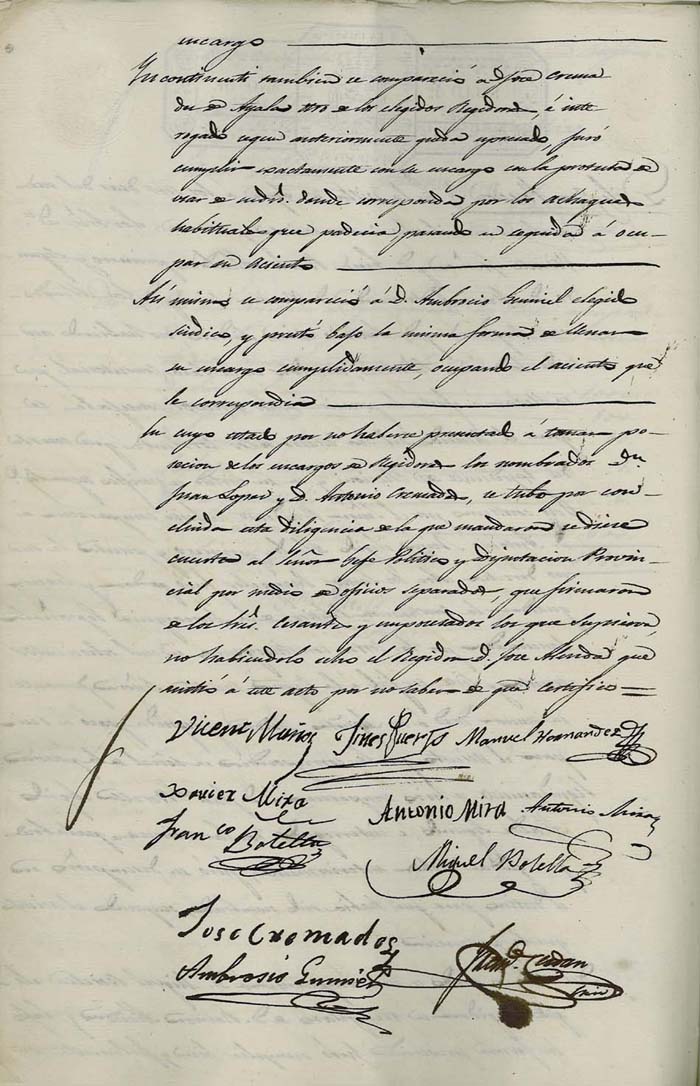 encargo
Incontinenti tambien se compareció a D. Jose Crema
des de Ayala otro de los elegidos Regidores, é inte
rogado segun anteriormente queda espresado, juró
cumplir exactamente con su encargo con la protesta de
usar de su dro. donde corresponda por los achaques
habituales que padecia pasando en seguida á ocu-
par su asiento
Asi mismo se compareció á D. Ambrocio Gumiel elegido
sindico, y prestó bajo la misma forma de llenar
su encargo cumplidamente, ocupando el asiento que
le correspondia
En cuyo estado por no haberse presentado á tomar po-
sesion de los encargos de Regidores los nombrados Dn.
Juan Lopez y D. Antonio Cremades, se tubo por con-
cluida esta diligencia de la que mandaron se diese
cuenta al Señor Gefe Politico y Diputacion Provin-
cial por medio de oficios separados, que firmaron
de los Sres. Cesantes y emposesados los que supieron,
no habiendolo echo el Regidor D. Jose Merida que
asistió á este acto por no saber de que certifico =
Vicente Muñoz Gines Huerts Manuel Hernandez
Xavier Mira Antonio Mira Antonio Mira
Franco Botella
Miguel Botella
Jose Cremades
Ambrosio Gumiel